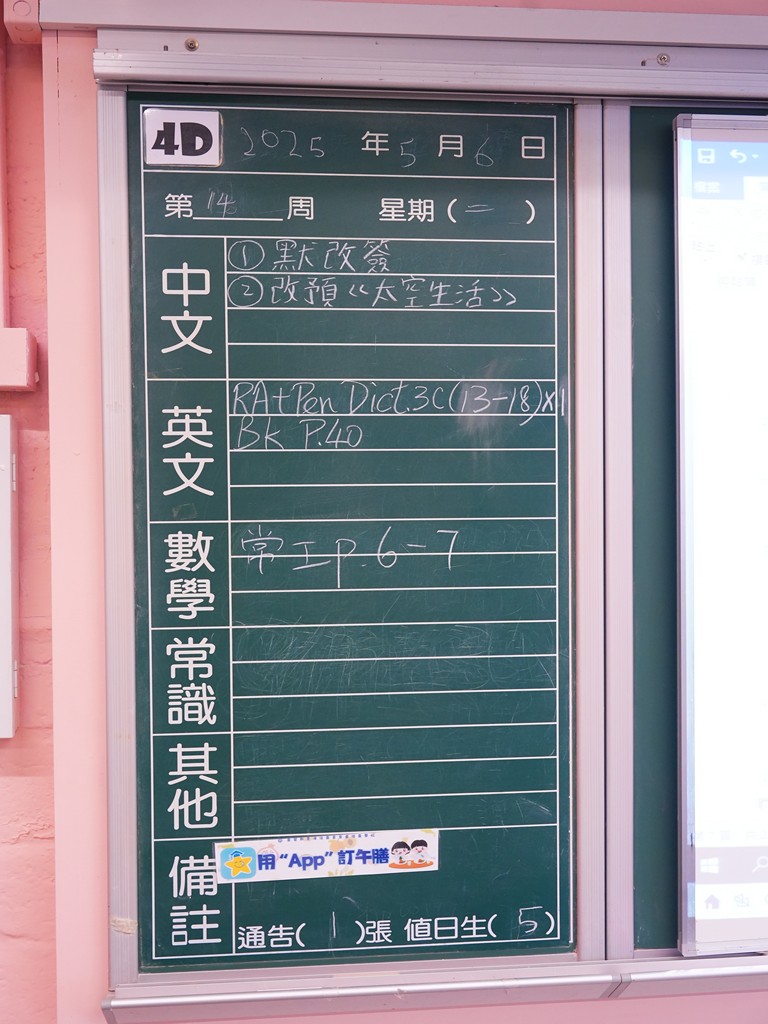 4D 2025 年 5 月 6 日
第 14 周 星期 ( 二 )
中文
① 默改簽
② 改預《太空生活》
英文
RA+Pen Dict.3C(13-18)×1
BK P.40
數學
常工 p.6-7
常識
其他
備註
用“App”訂午膳
通告( 1 )張 值日生( 5 )